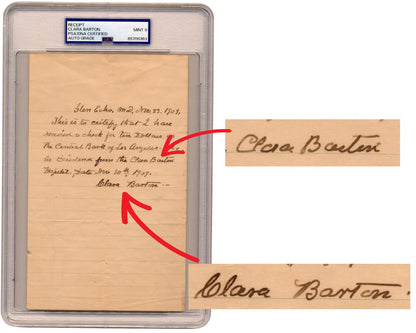 RECEIPT
CLARA BARTON
PSA/DNA CERTIFIED
AUTO GRADE
MINT 9
Glen Echo, Md, Nov. 23. 1909.
This is to certify that I have
received a check for ten Dollars on
the Central Bank of Los Angeles
as dividend from the Clara Barton
Hospital, Date Nov 10th, 1909.
Clara Barton
Clara Barton
Clara Barton